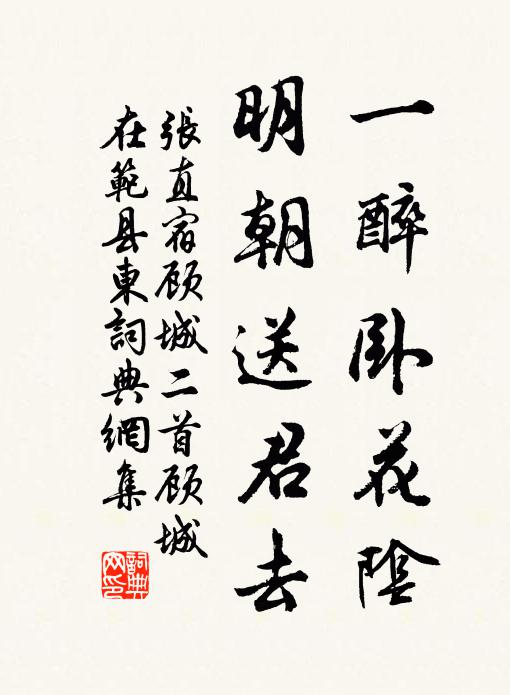 一醉卧花陰
明朝送君去
張直宿顾城二首顾城
在範县東詞典網集
詞典网印